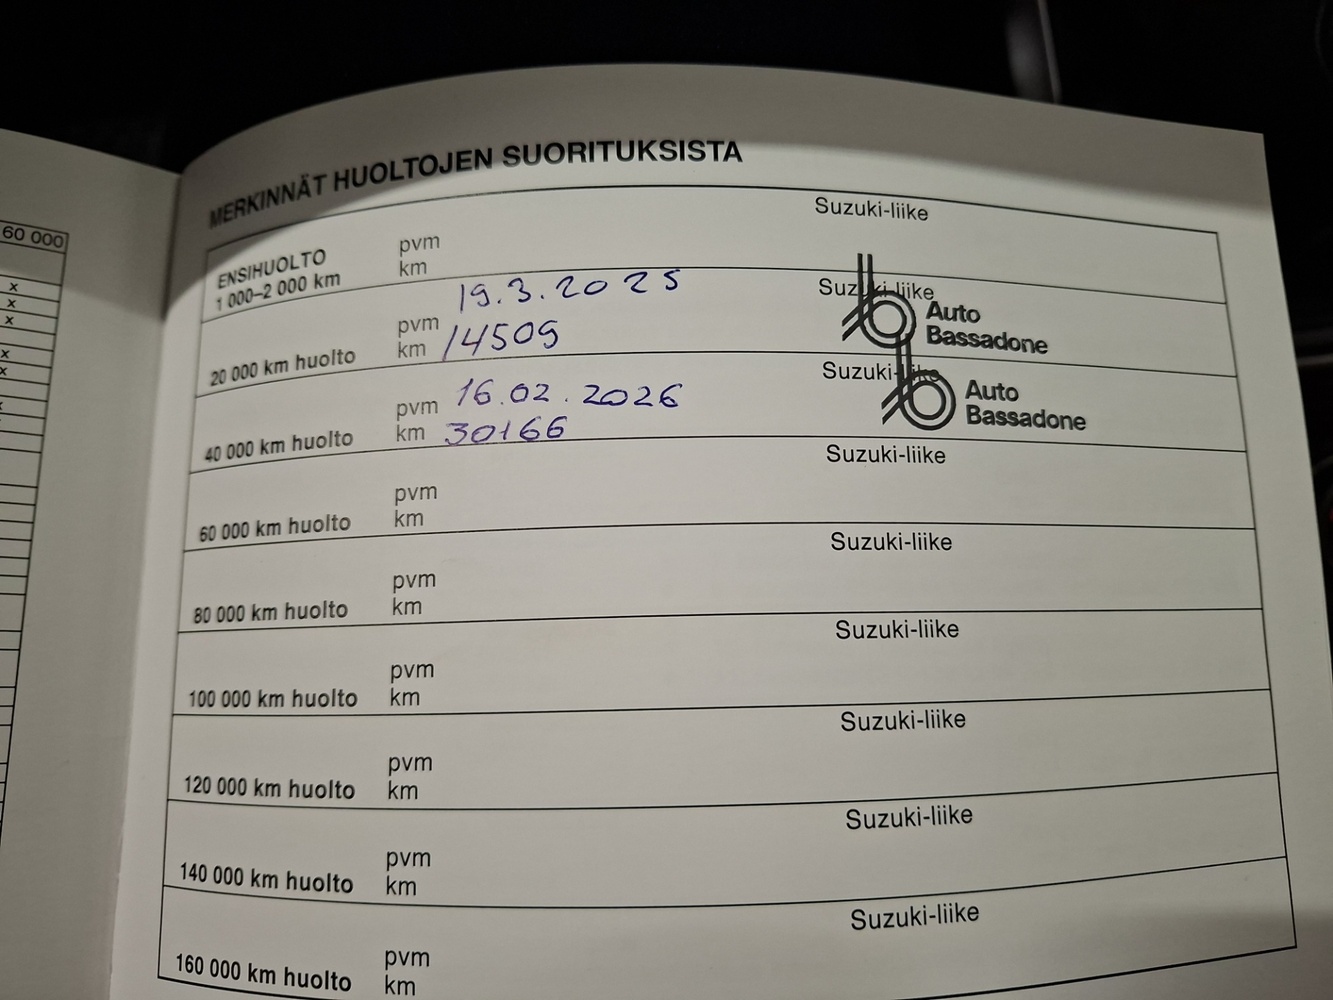 60 000
x
x
x
x
x
MERKINNÄT HUOLTOJEN SUORITUKSISTA
ENSIHUOLTO
1 000–2 000 km
pvm
km
Suzuki-liike
20 000 km huolto
pvm 19.3.2025
km 14509
Suzuki-liike
Auto
Bassadone
40 000 km huolto
pvm 16.02.2026
km 30166
Suzuki-liike
Auto
Bassadone
60 000 km huolto
pvm
km
Suzuki-liike
80 000 km huolto
pvm
km
Suzuki-liike
100 000 km huolto
pvm
km
Suzuki-liike
120 000 km huolto
pvm
km
Suzuki-liike
140 000 km huolto
pvm
km
Suzuki-liike
160 000 km huolto
pvm
km
Suzuki-liike